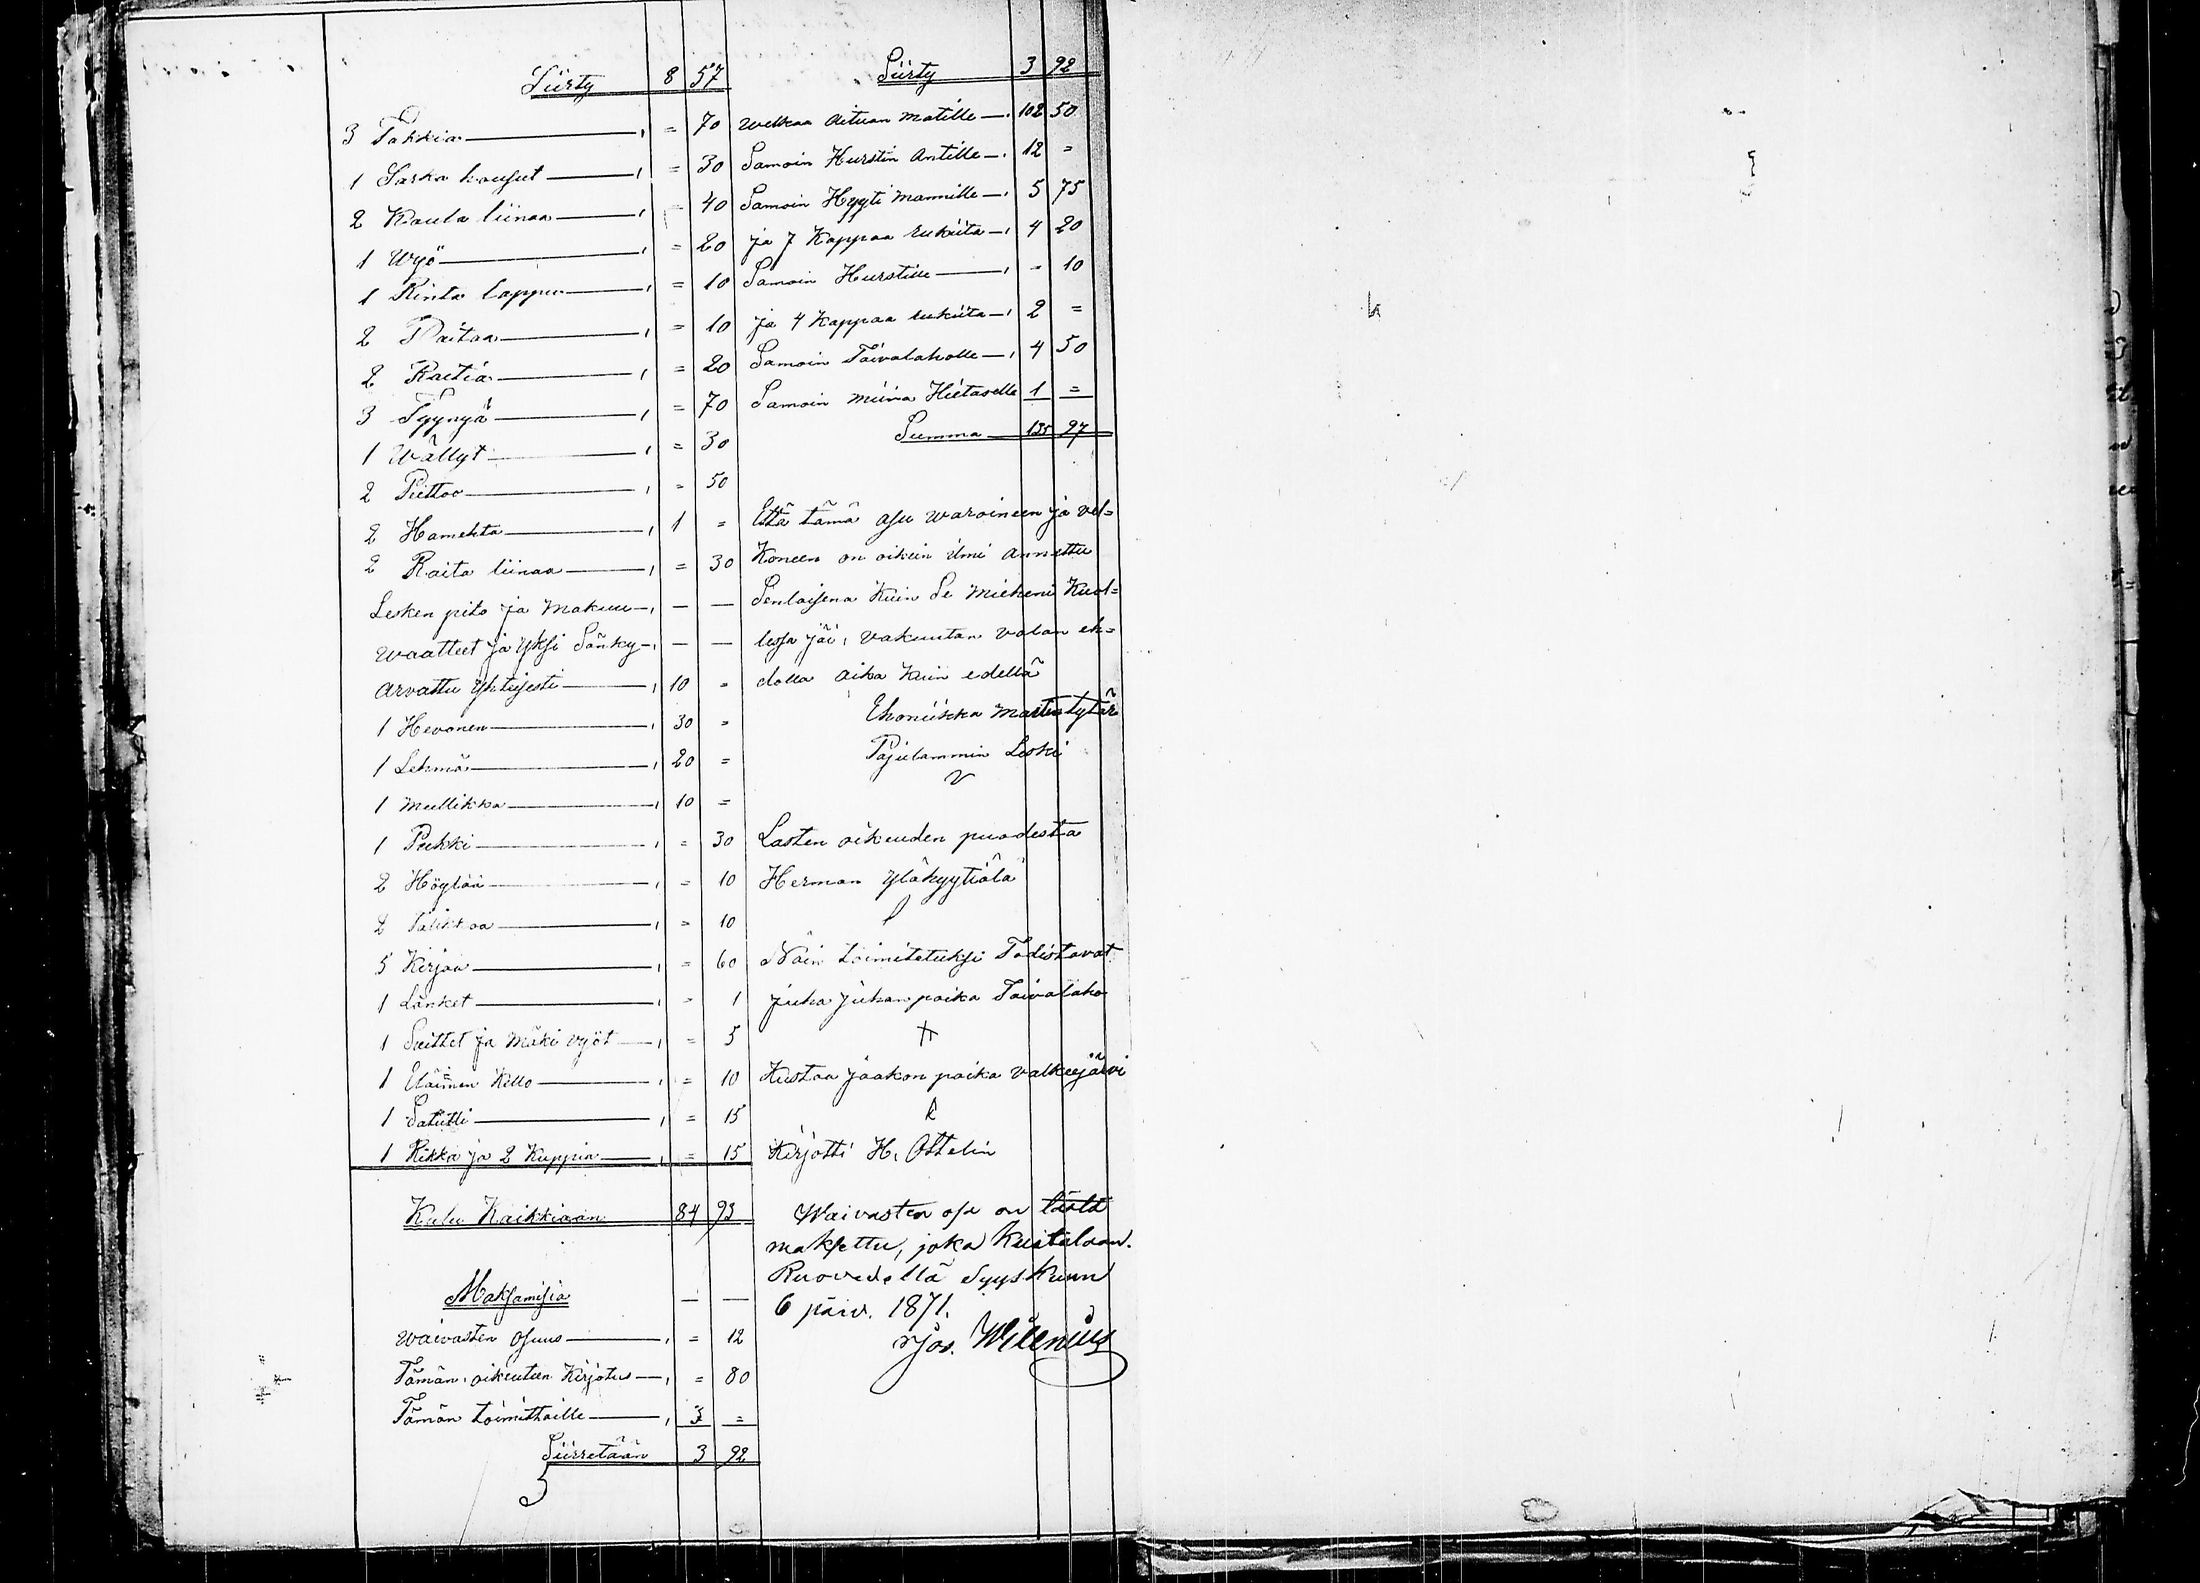 Siirty 8 57
3 Takkia — , = 70
1 Sarka housut — , = 30
2 Kaula liinaa — , = 40
1 Wyö — , = 20
1 Rinta lappu — , = 10
2 Paitaa — , = 10
2 Raitia — , = 20
3 Tyynyä — , = 70
1 Wällyt — , = 30
2 Peittoo — , = 50
2 Hamehta — , 1 =
2 Raita liinaa — , = 30
Lesken pito ja Makuu — , — —
waatteet ja yksi Sänky — , — —
arvattu yhteisesti — , 10 =
1 Hevonen — , 30 =
1 Lehmä — , 20 =
1 Mullikka — , 10 =
1 Pukki — , = 30
2 Höylää — , = 10
2 Talikkoa — , = 10
5 Kirjaa — , = 60
1 Länket — , = 1
1 Suittet ja Mäki vyöt — , = 5
1 Eläimen Kello — , = 10
1 Satulli — , = 15
1 Kikka ja 2 Kuppia — , = 15
Kalu Kaikkiaan 84 93
Maksamisia — —
waivasten osuus — , = 12
Tämän oikeuten Kirjotus — , = 80
Tämän toimittaille — , 3 =
Siirretään 3 92
Siirty 3 92
welkaa Aituan Matille — , 102 50
Samoin Hurstin Antille — , 12 =
Samoin Hyyti Mannille — , 5 75
ja 7 Kappaa rukiita — , 4 20
Samoin Hurstille — , = 10
ja 4 Kappaa rukiita — , 2 =
Samoin Taivalaholle — , 4 50
Samoin Miina Hietaselle 1 =
Summa — 135 97
Että tämä asu waroineen ja vel=
Koneen on oikein ilmi annettu
Senlaisena Kuin Se Mieheni Kuol=
lessa jäi, vakuutan valan eh=
dolla aika Kuin edellä
Ehoniikka Martintytär
Pajulammin Leski
V
Lasten oikeuden puodesta
Herman Yläkyytiälä
Näin toimitetuksi Todistavat
Juha Juhan poika Taivalaho
Kustaa Jaakon poika Valkeejärvi
K
Kirjotti H. Ottelin
Waivasten osa on tästä
maksettu, joka Kuitataan.
Ruovedellä Syys Kuun
6 päiv. 1871.
Jos. Wilenius